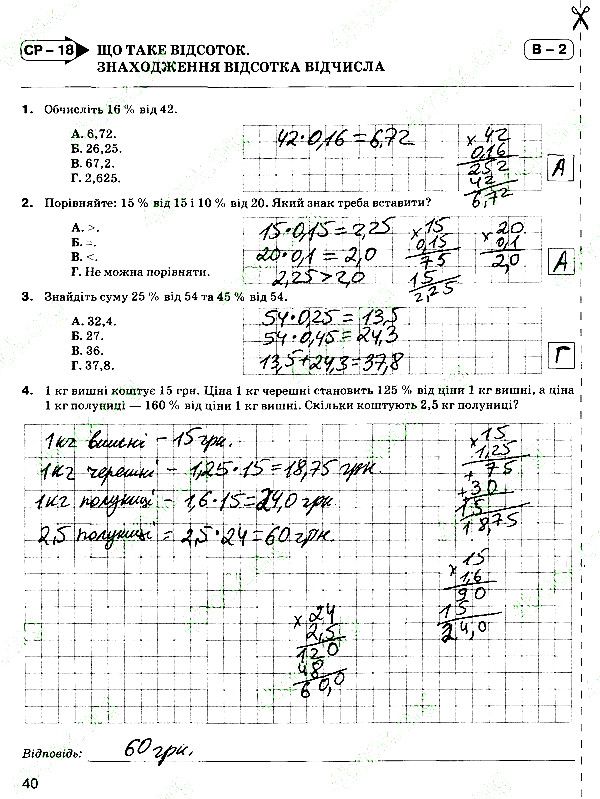 СР – 18
ЩО ТАКЕ ВІДСОТОК.
ЗНАХОДЖЕННЯ ВІДСОТКА ВІДЧИСЛА
В – 2
1. Обчисліть 16 % від 42.
А. 6,72.
Б. 26,25.
В. 67,2.
Г. 2,625.
42·0,16=6,72
× 42
0,16
252
42
6,72
А
2. Порівняйте: 15 % від 15 і 10 % від 20. Який знак треба вставити?
А. >.
Б. =.
В. <.
Г. Не можна порівняти.
15·0,15=2,25
20·0,1=2,0
2,25>2,0
× 15
0,15
75
15
2,25
× 20
0,1
2,0
А
3. Знайдіть суму 25 % від 54 та 45 % від 54.
А. 32,4.
Б. 27.
В. 36.
Г. 37,8.
54·0,25=13,5
54·0,45=24,3
13,5+24,3=37,8
Г
4. 1 кг вишні коштує 15 грн. Ціна 1 кг черешні становить 125 % від ціни 1 кг вишні, а ціна
1 кг полуниці — 160 % від ціни 1 кг вишні. Скільки коштують 2,5 кг полуниці?
1кг вишні – 15 грн.
1кг черешні – 1,25·15=18,75 грн.
1кг полуниці – 1,6·15=24,0 грн.
2,5 полуниці = 2,5·24=60 грн.
× 15
1,25
+ 75
+ 30
15
18,75
× 15
1,6
90
15
24,0
× 24
2,5
120
48
60,0
Відповідь: 60 грн.
40